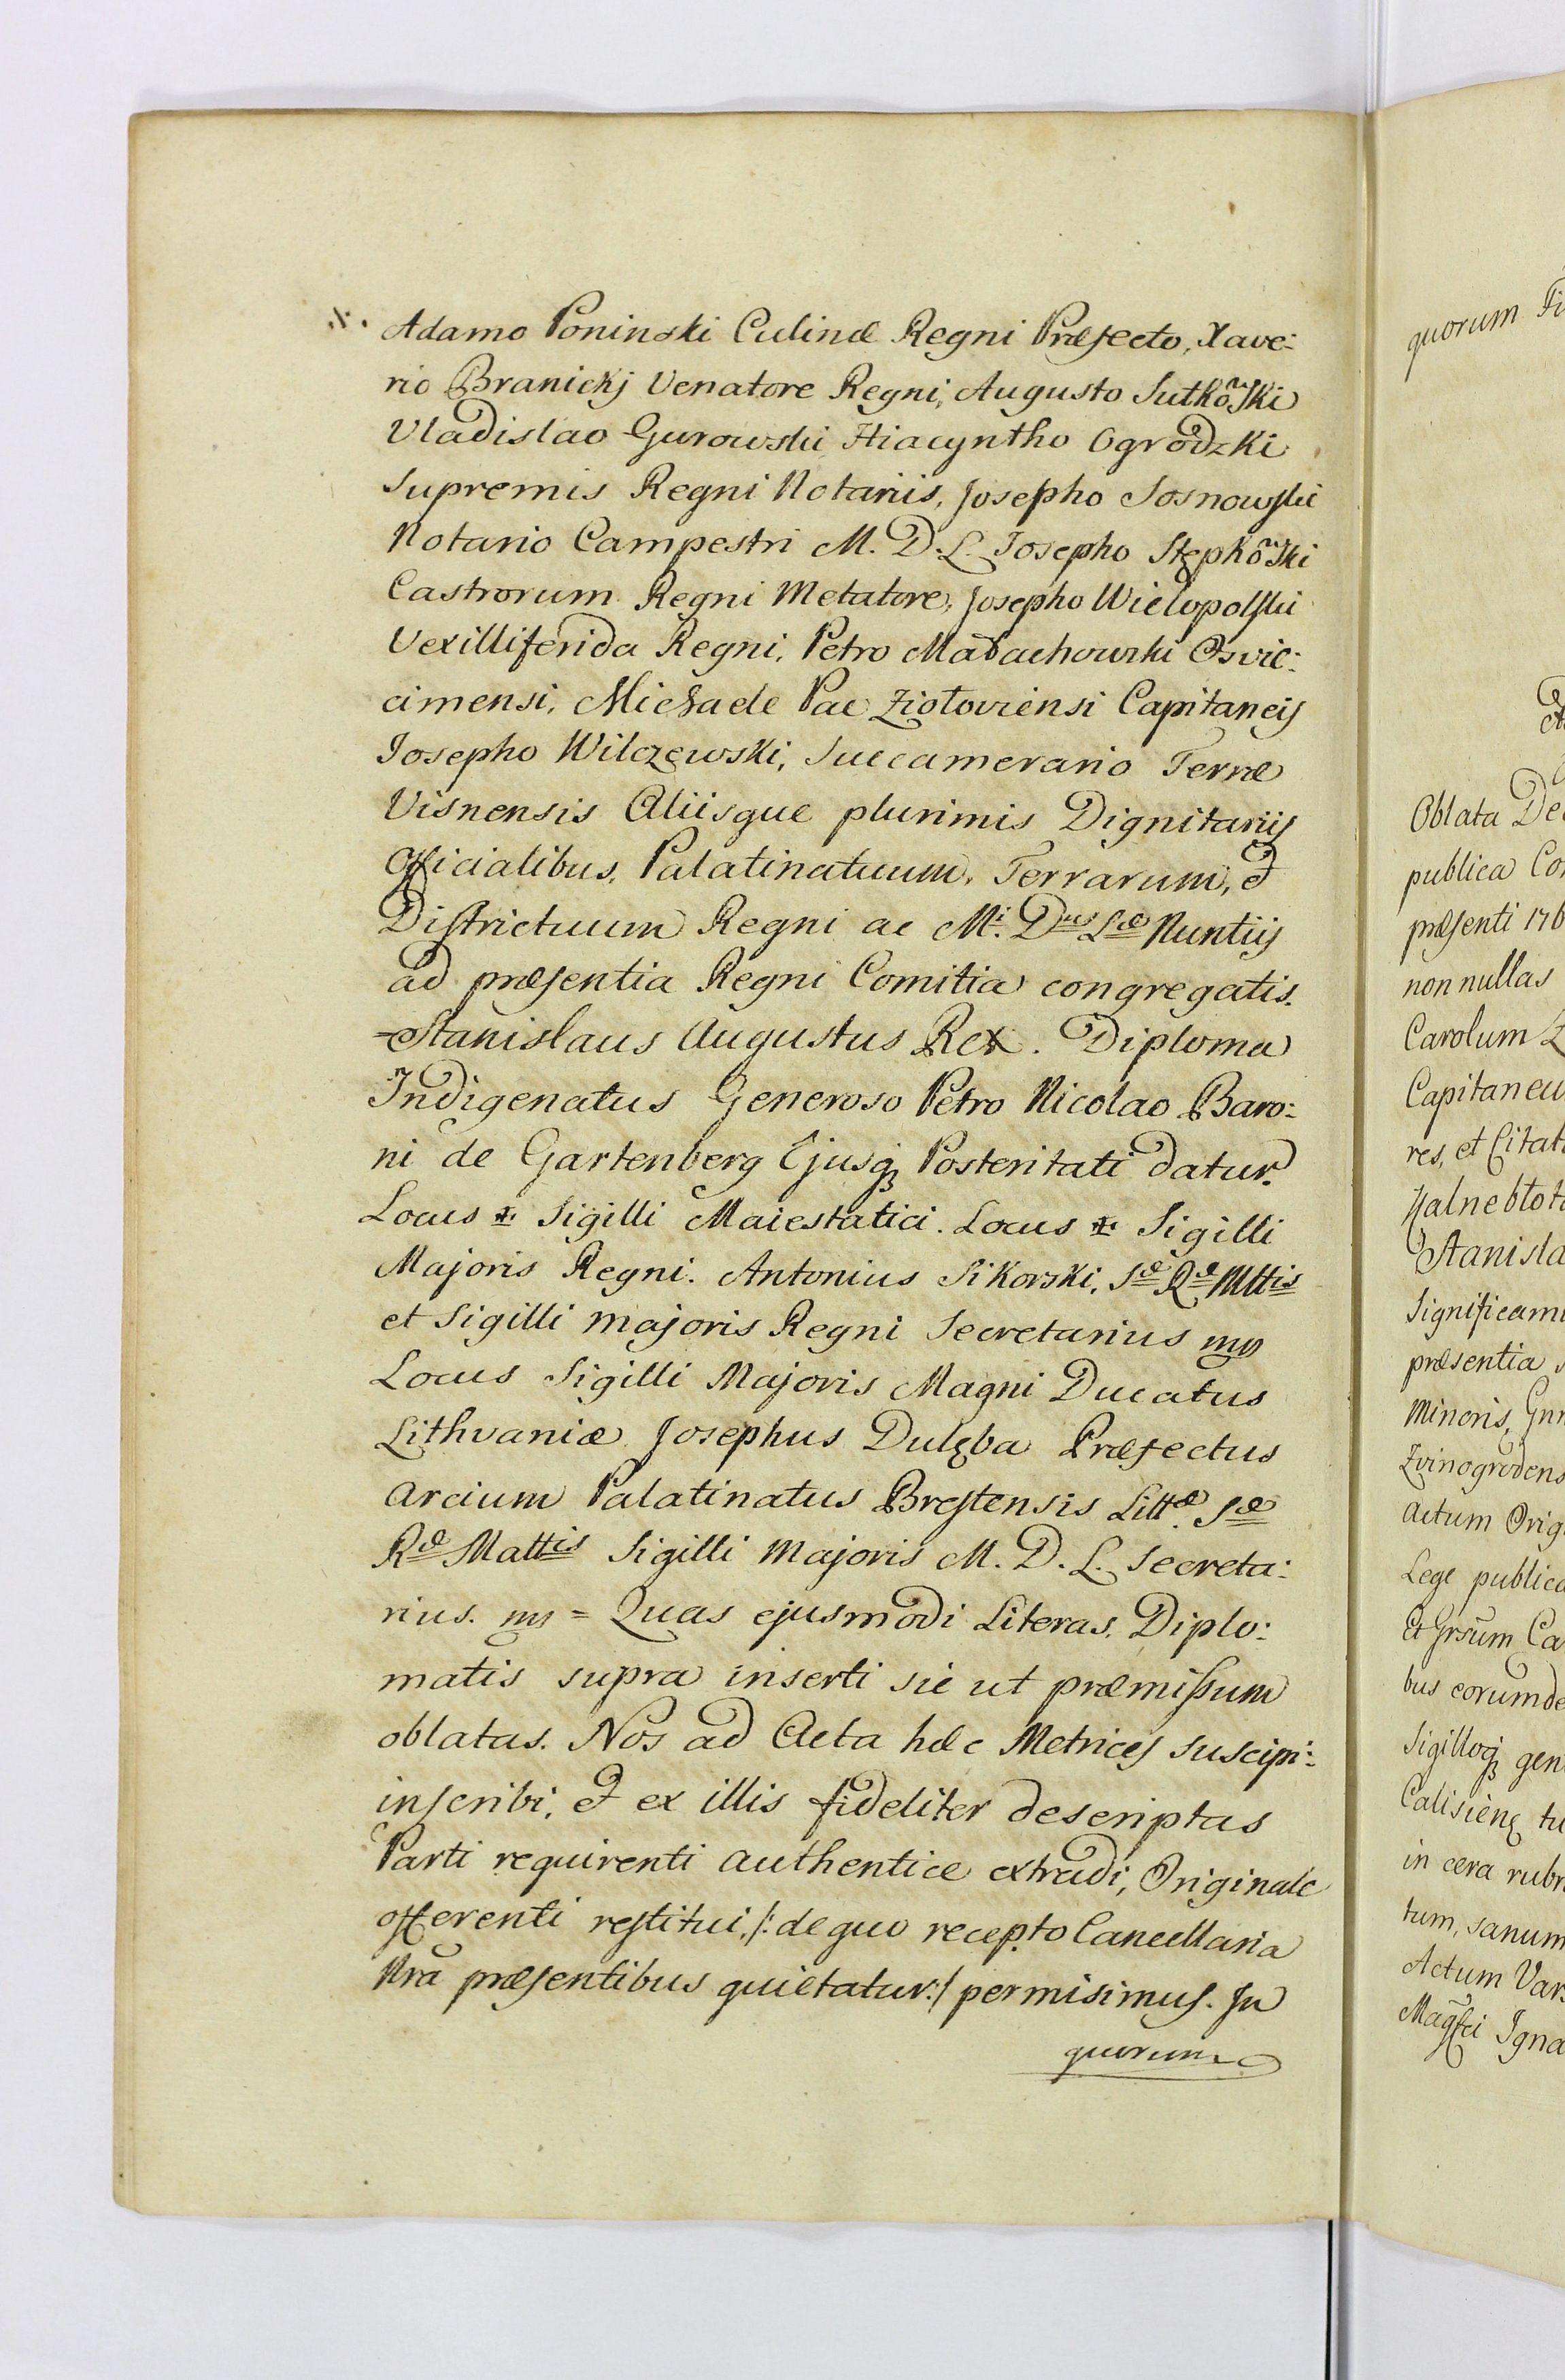 .X. Adamo Poninski Culinæ Regni Præfecto, Xave:
rio Branickj Venatore Regni, Augusto Sutkõski
Vladislao Gurowski Hiacyntho Ogrodzki
Supremis Regni Notariis, Josepho Sosnowski
Notario Campestri M. D. L. Josepho Stępkõski
Castrorum Regni Metatore, Josepho Wielopolski
Vexilliferida Regni, Petro Małachowski Osvie:
cimensi, Michaele Pac Ziołoviensi Capitaneis
Josepho Wilczewski, Succamerario Terræ
Visnensis Aliisque plurimis Dignitariis
Officialibus, Palatinatuum, Terrarum, et
Districtuum Regni ac Mi. Dus Læ Nuntiis
ad præsentia Regni Comitia congregatis.
=Stanislaus Augustus Rex. Diploma
Indigenatus Generoso Petro Nicolao Baro:
ni de Gartenberg Ejusq Posteritati datur.
Locus ✠ Sigilli Maiestatici. Locus ✠ Sigilli
Majoris Regni. Antonius Sikorski, Sæ Ræ Mttis
et Sigilli majoris Regni Secretarius mp
Locus Sigilli Majoris Magni Ducatus
Lithvaniæ Josephus Dulęba Præfectus
Arcium Palatinatus Brestensis Littæ Sæ
Ræ Mattis Sigilli Majoris M. D. L. Secreta:
rius. mp = Quas ejusmodi Literas Diplo:
matis supra inserti sic ut præmissum
oblatas. Nos ad Acta hæc Metrices suscipi:
inscribi, et ex illis fideliter descriptas
Parti requirenti authentice extradi, Originale
offerenti restitui, /: de quo recepto Cancellaria
Nrã præsentibus quietatur:/ permisimus. In
quorum
quorum Fi
Oblata De
publica Co
præsenti 176
non nullas
Carolum
Capitaneu
res, et Citat
Halnebłot
Stanisla
Significam
præsentia
Minoris,
Zvinogrodens
Actum Orig
Lege publica
Et Grsum Ca
bus eorumde
Sigilloq gen
Calisieng tu
in cera rubr
tum, sanum
Actum Vars
Magfci Igna